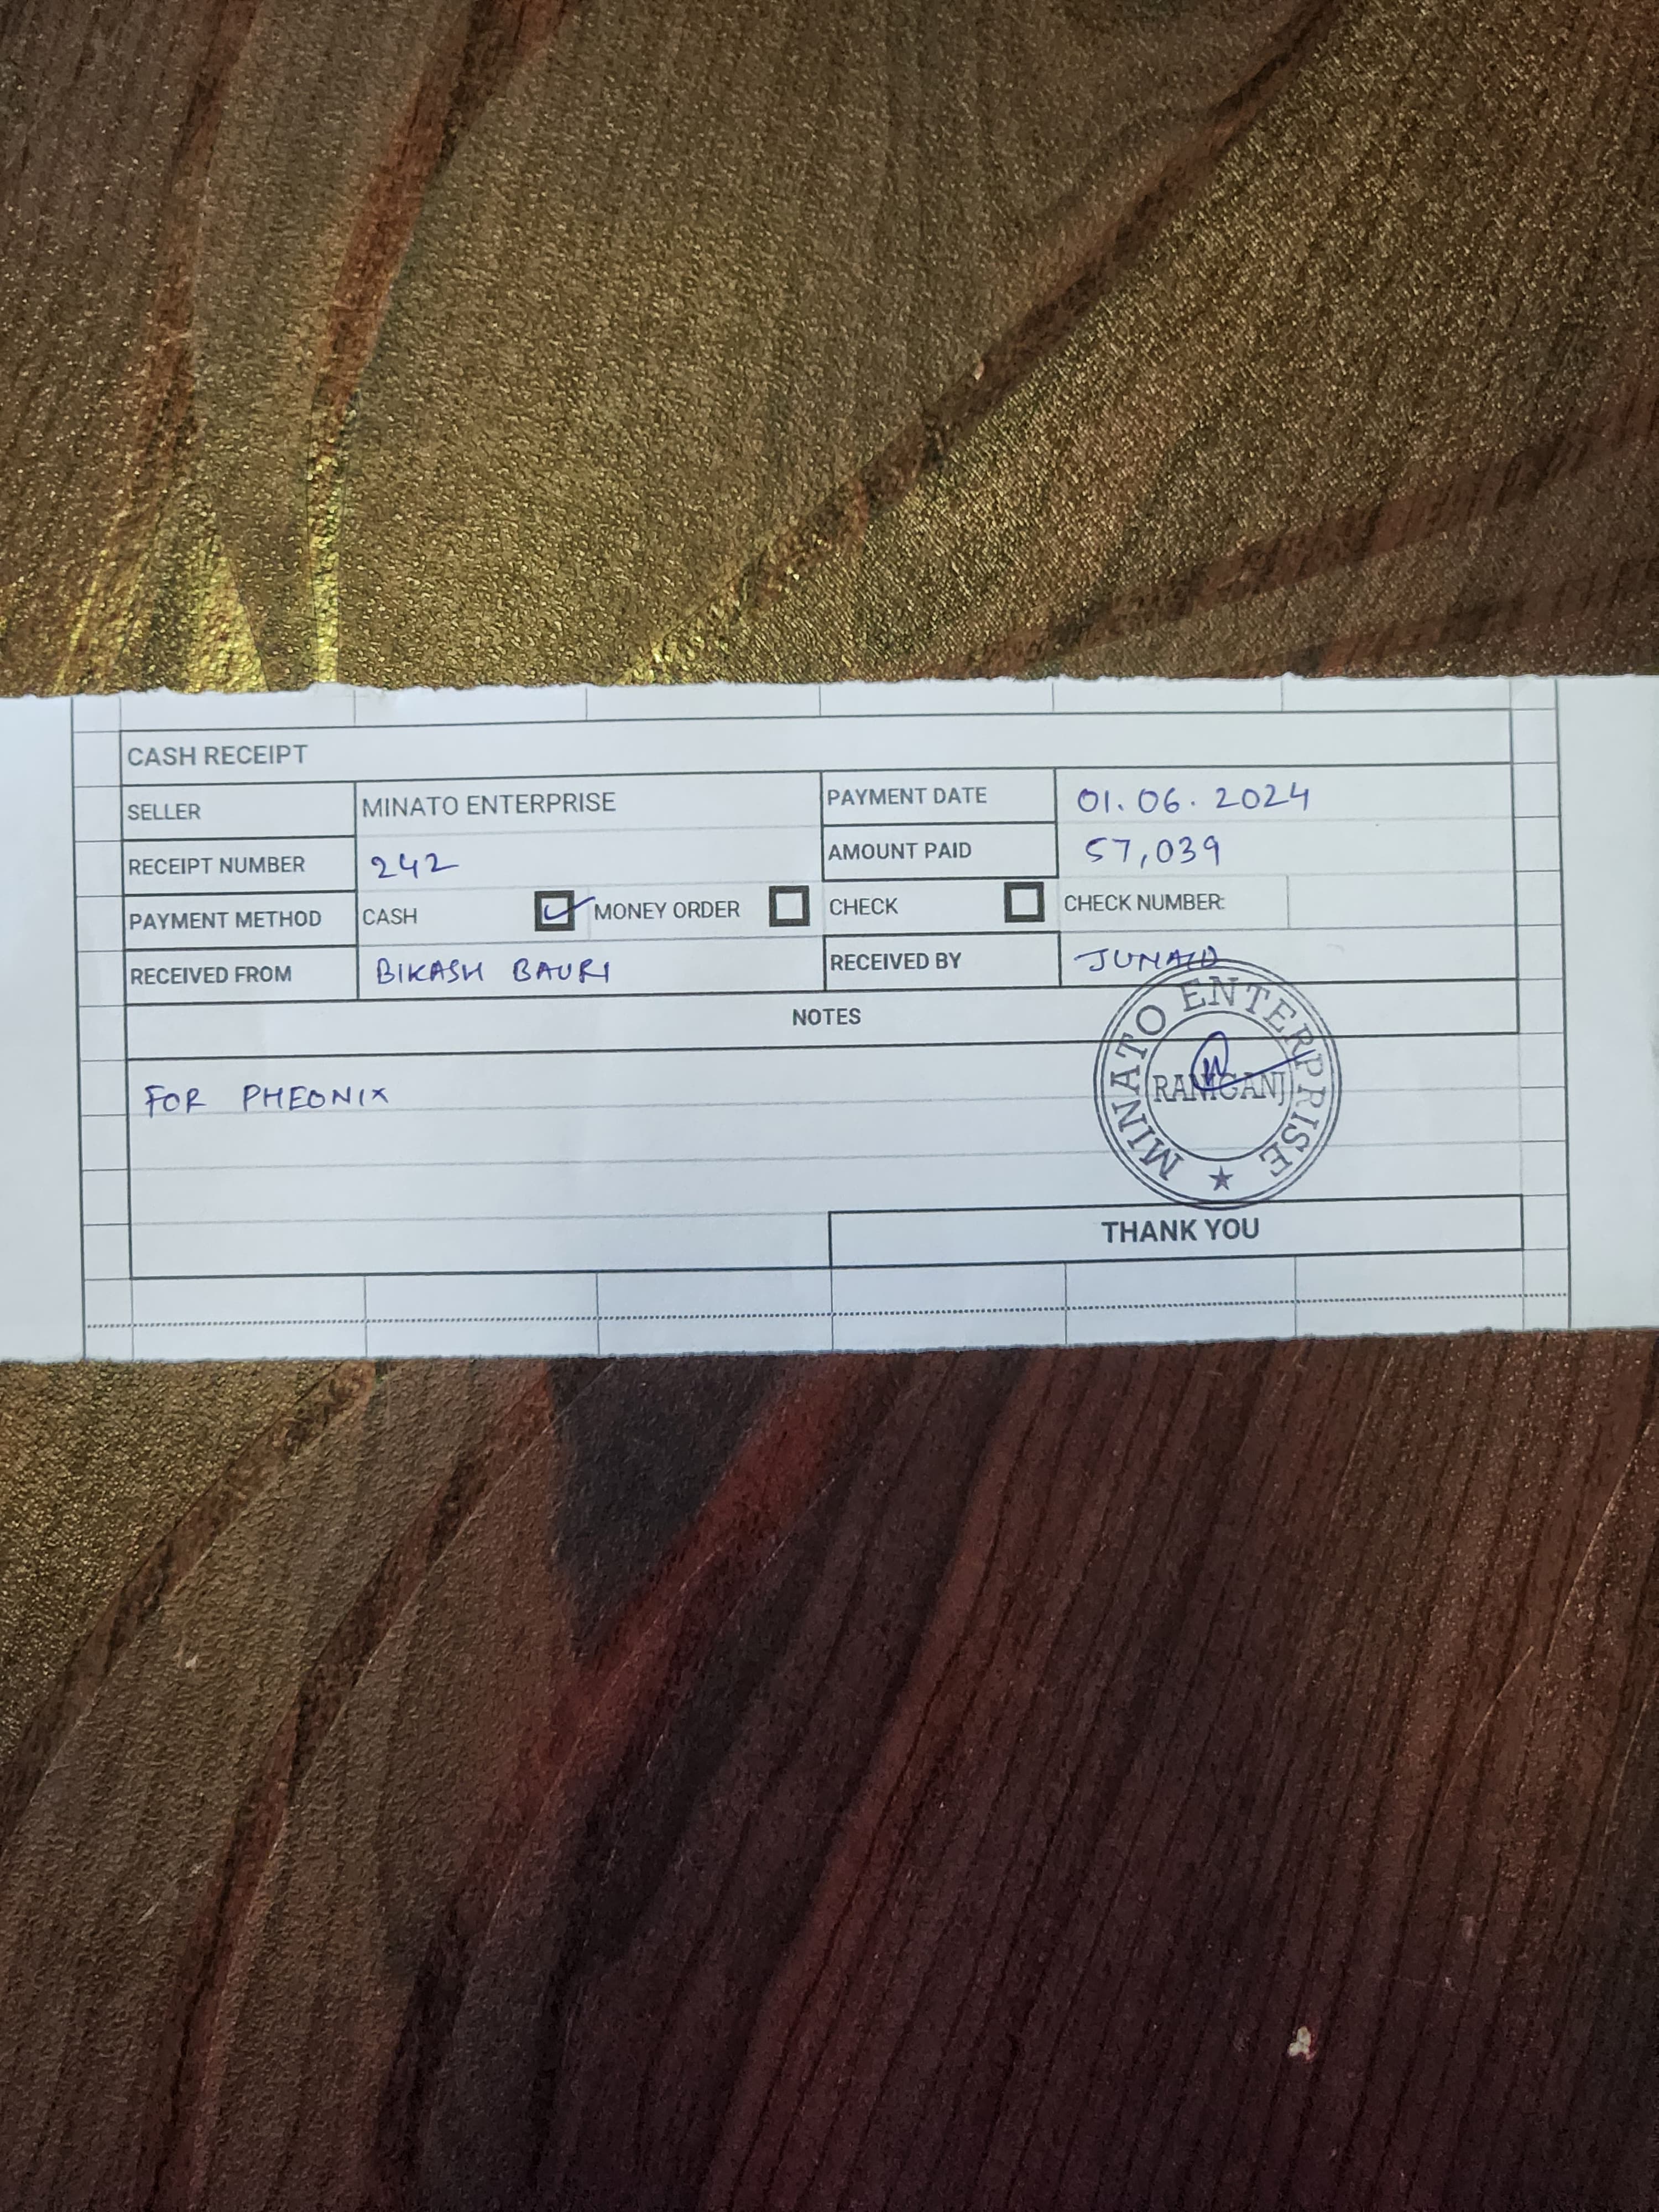 CASH RECEIPT
SELLER MINATO ENTERPRISE PAYMENT DATE 01.06.2024
RECEIPT NUMBER 242 AMOUNT PAID 57,039
PAYMENT METHOD CASH MONEY ORDER CHECK CHECK NUMBER:
RECEIVED FROM BIKASH BAURI RECEIVED BY JUNAID
NOTES
FOR PHEONIX
MINATO ENTERPRISE
RANIGANJ
THANK YOU